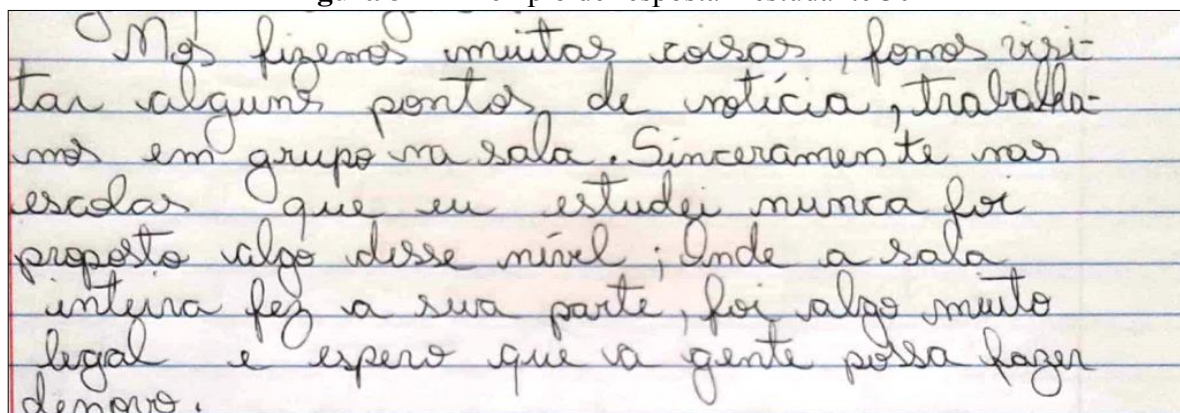 Nós fizemos muitas coisas, fomos visi-
tar alguns pontos de notícia, trabalha-
mos em grupo na sala. Sinceramente nas
escolas que eu estudei nunca foi
proposto algo desse nível; Onde a sala
inteira fez a sua parte, foi algo muito
legal e espero que a gente possa fazer
denovo.